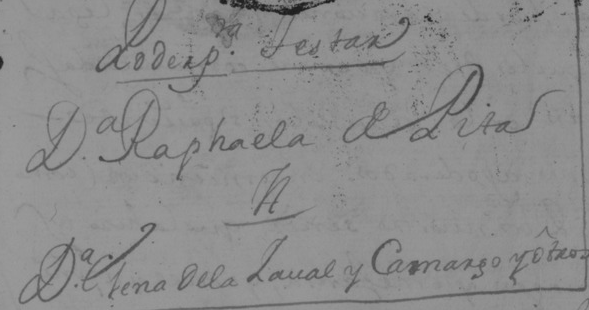 Poder p.ra Testar
D.a Raphaela de Pita
A
D.a Elena dela Zaual y Camargo y otros